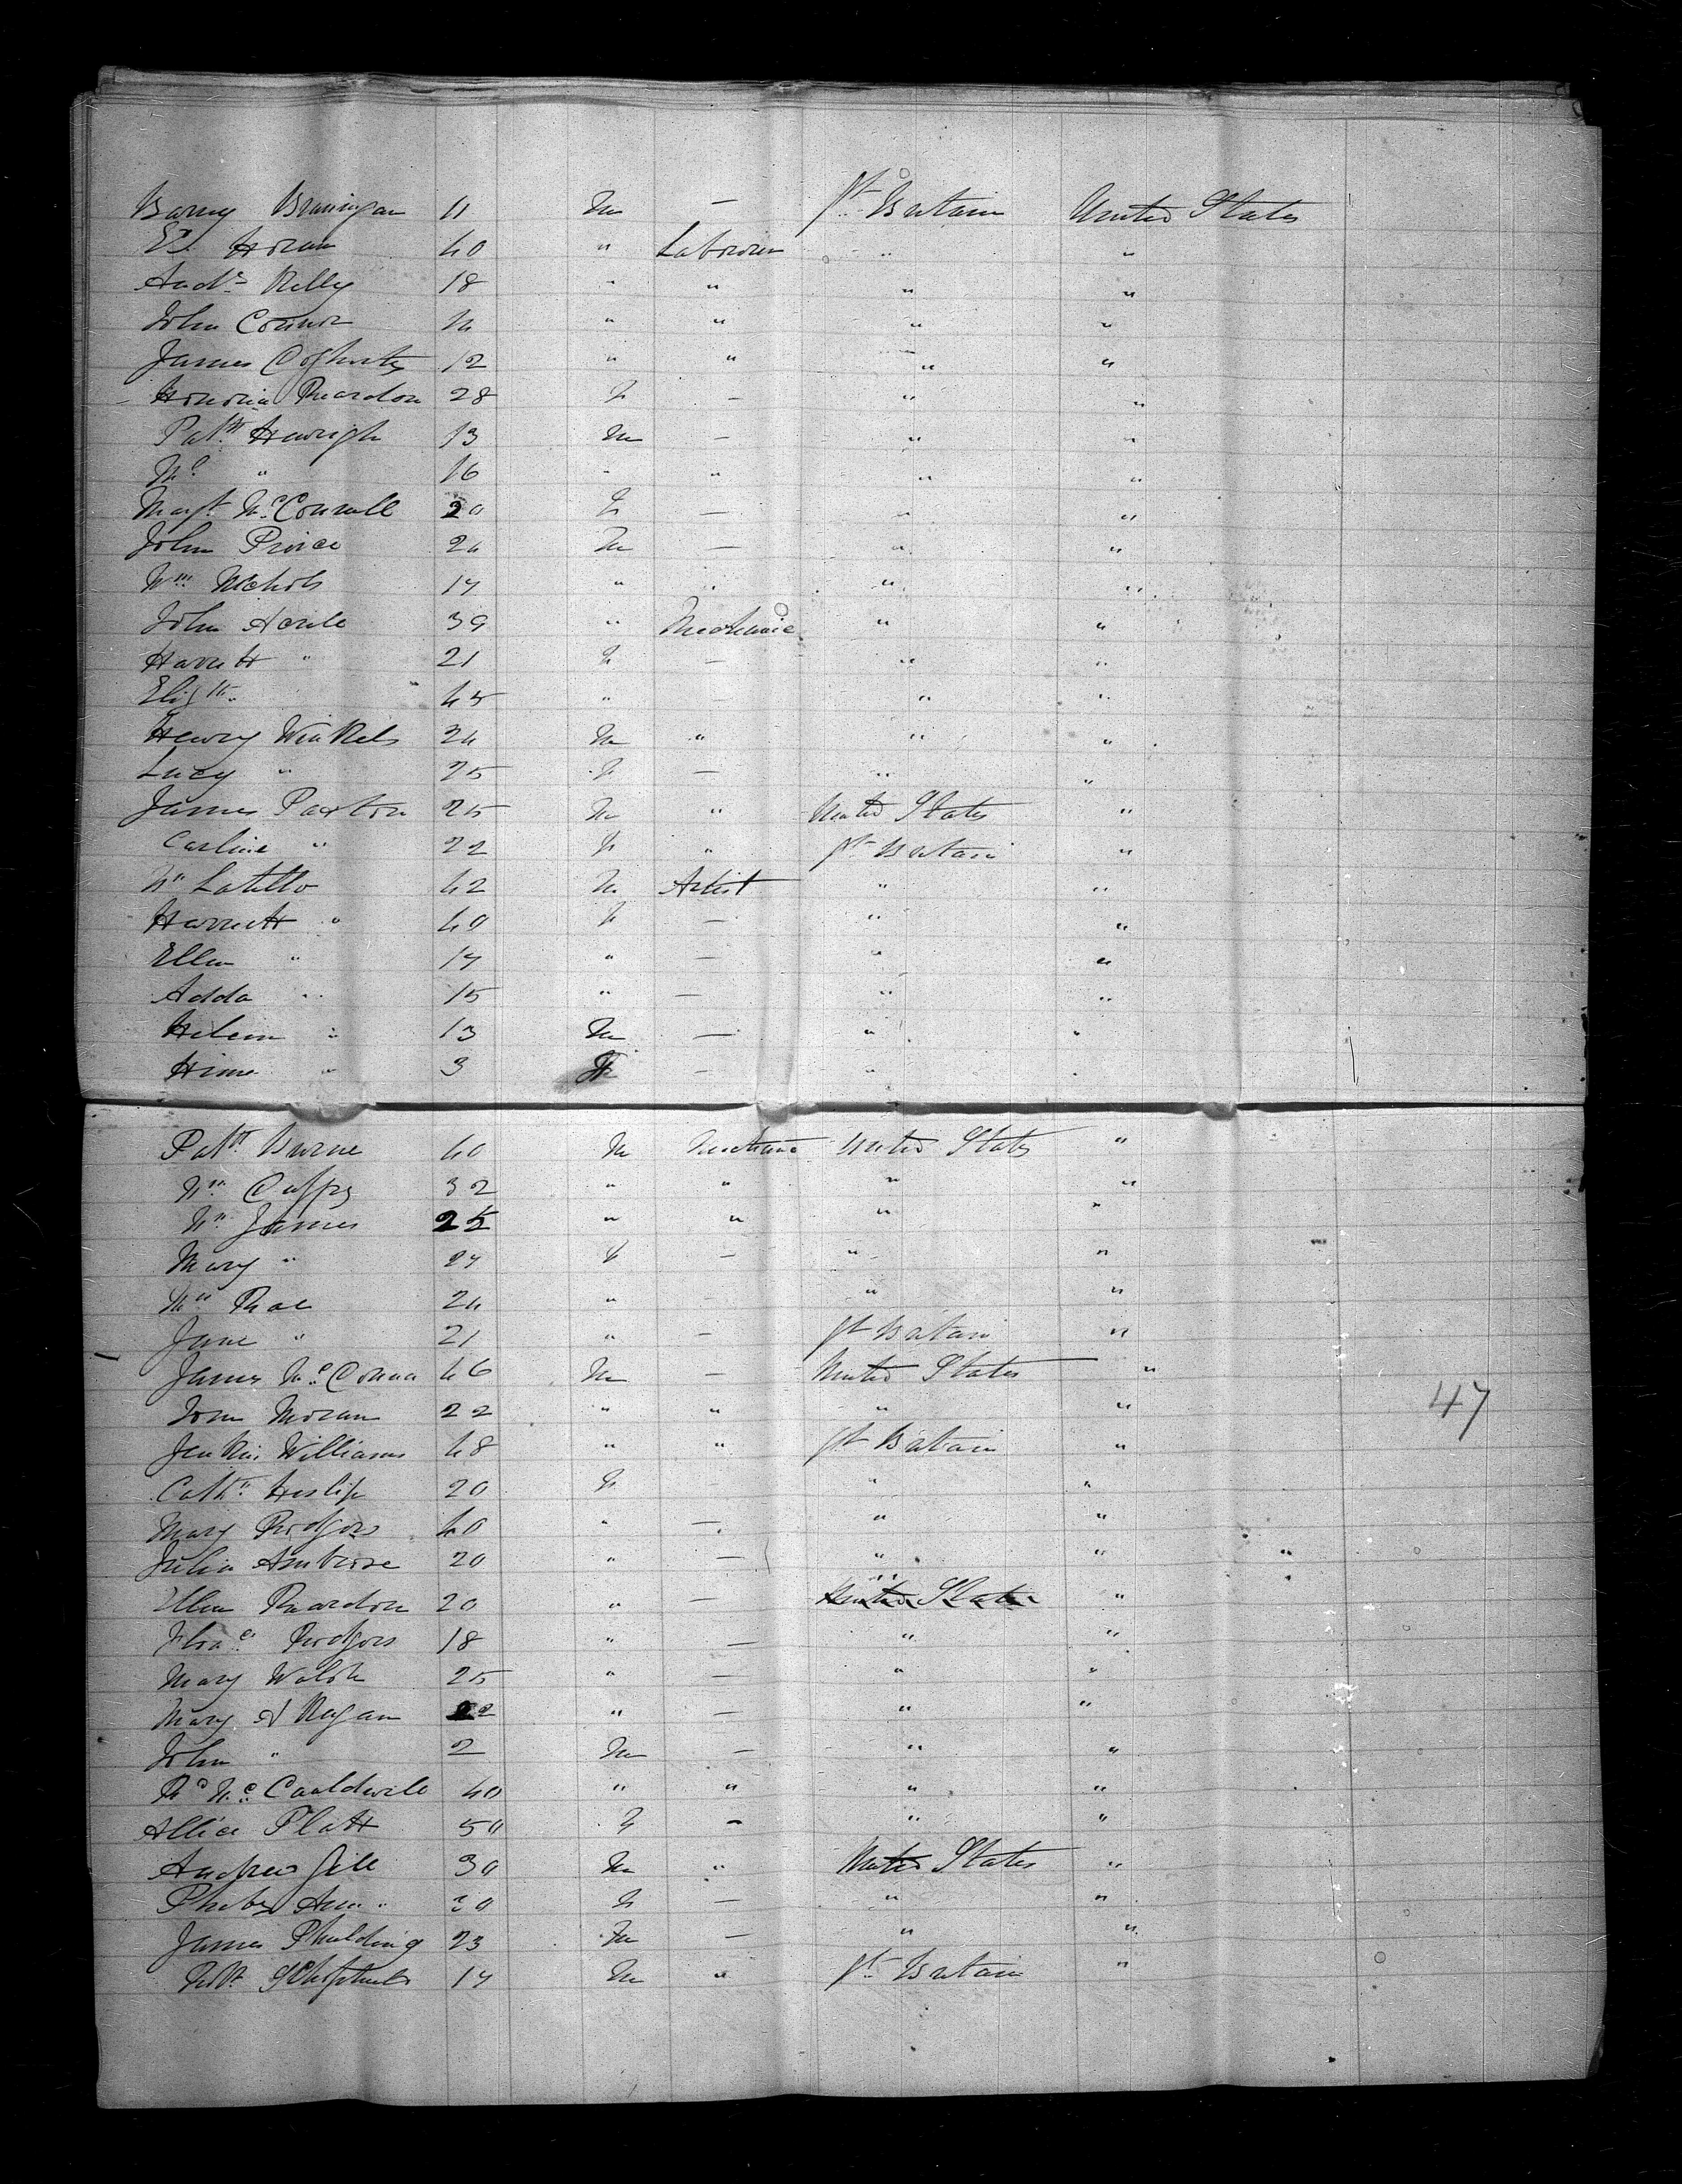 Barny Brannigan 11 M — Gt Britain United States
Ed. Horan 40 " Labourer " "
Andw Kelly 18 " " " "
John Connor " " " "
James Dogherty 12 " " " "
Honoria Reardon 28 F — " "
Patk Hawigh 13 M — " "
Ml " 16 " " " "
Margt McConnell 20 F — " "
John Prince 24 M — " "
Wm Nichols 17 " " " "
John Acrele 39 " Mechanic " "
Harriett " 21 F — " "
Elizth 45 " — " "
Henry Winkels 24 M " " "
Lucy " 25 F — " "
James Paxton 25 M " United States "
Carline " 22 F " Gt Britain "
Wm Latillo 42 M Artist " "
Harriett " 40 F — " "
Ellen " 17 " — " "
Adda " 15 " — " "
" 13 M — " "
" 3 F — "
Patk Burne 40 M Mechanic United States "
Wm Caffry 32 " " " "
Wm James 25 " " " "
Mary " 27 F — " "
Rae 24 " — " "
Jane " 21 " — Gt Britain "
James McConna 46 M — United States "
John Moran 22 " " " "
Jenkin Williams 48 " " Gt Britain "
Cathn Heslip 20 F " "
Mary Rodgers 40 " — " "
Julia Ambrose 20 " — " " "
Ellen Reardon 20 " — " United States "
Rodgers 18 " — " "
Mary Walsh 25 " — " "
Mary A Regan 22 " — " "
John " 2 M — " "
Rd McCauldwell 40 " " " "
Allice Platt 50 F — " "
Andrew Gill 30 M " United States "
Pheby Ann " 20 F — " "
James Phulding 23 M — " "
Robt 17 M " Gt Britain "
47